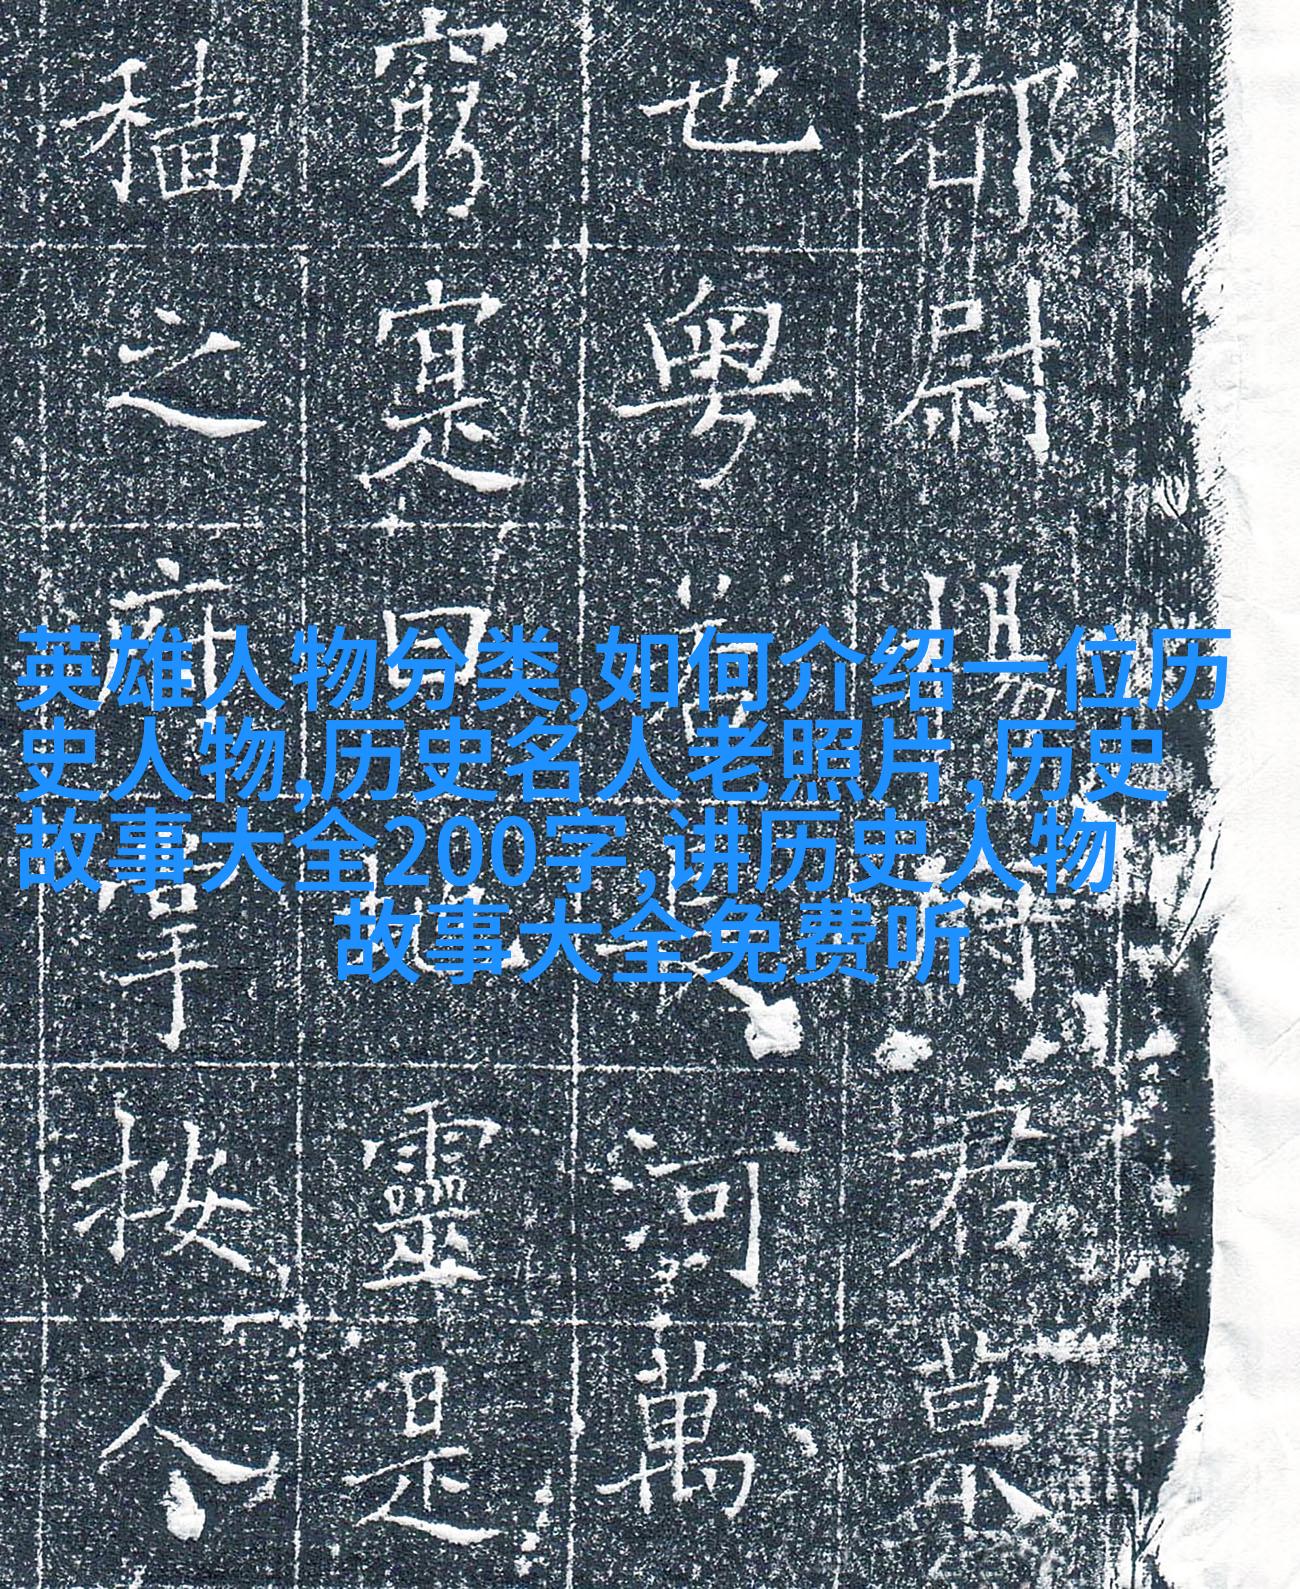 英雄人物分类,如何介绍一位历
史人物,历史名人老照片,历史
故事大全200字,讲历史人物
故事大全免费听
都尉揚君景
也粵若長河萬
窮寔曰地靈是
穡之府按人